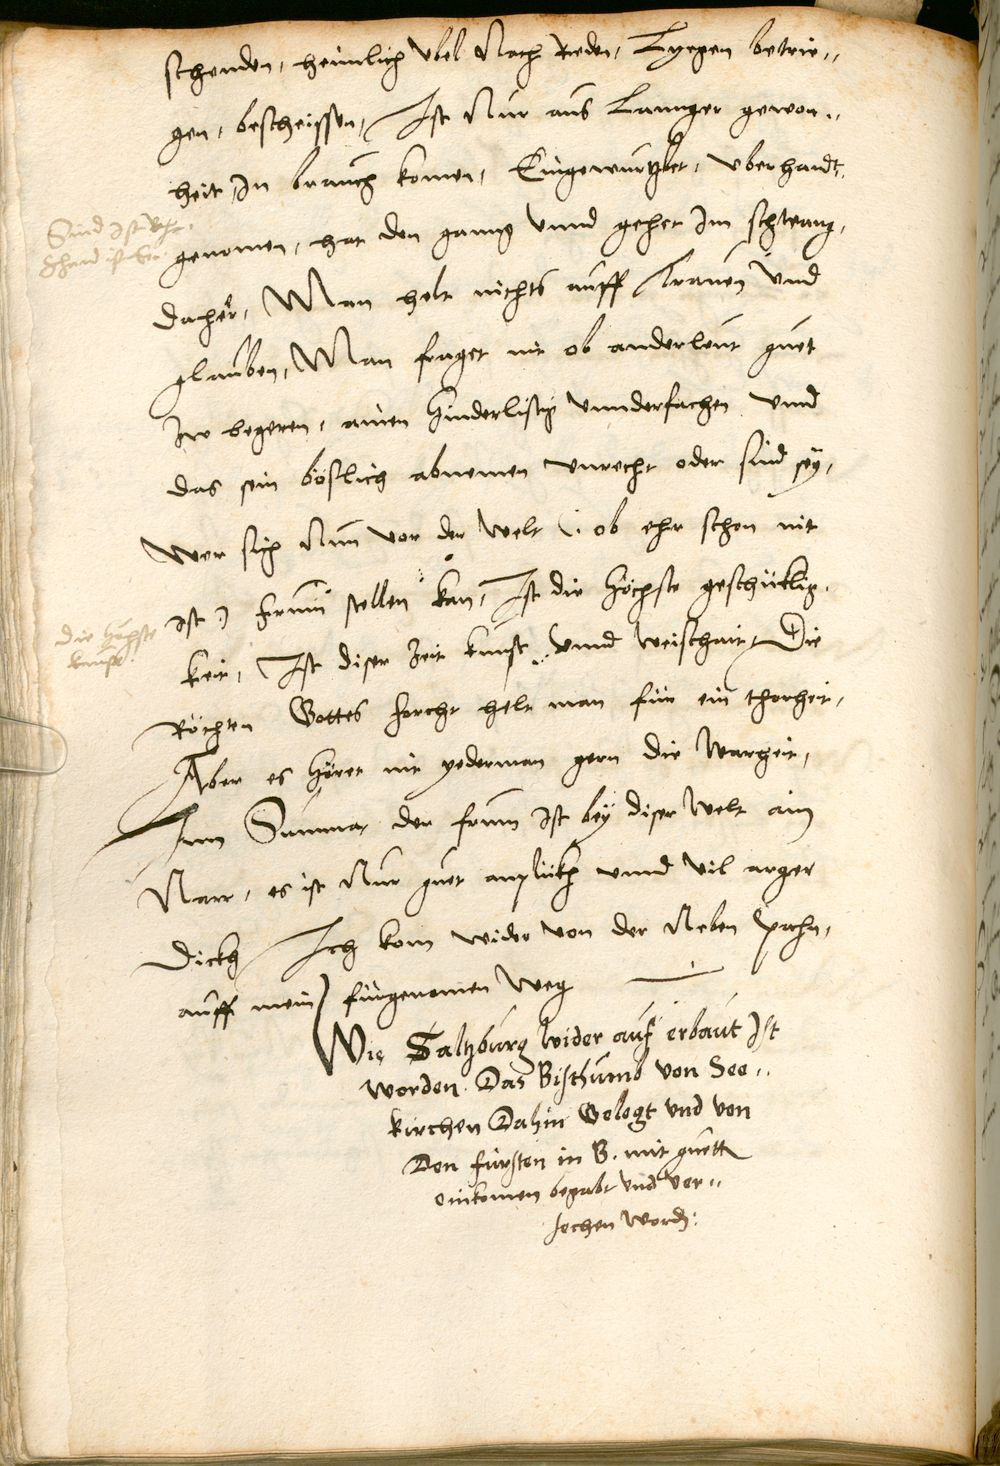 schenden, heimlich vbel Nach Reden, Lyegen betrie„
gen, bescheissen, Ist Nur aus Lannger gewon„
heit In brauch komen, Eingewurtzlet, vberhandt
Sind Ist Recht
Schand ist Eer
genomen, hat den ganng vnnd gehet Im schwang,
daher, Man helt nichts auff Trauen vnd
glauben, Man fraget nit ob anderleut guet
Zw begeren, ainen hinderlistig vnnderfachen vnnd
das sein böslich abnemen vnrecht oder sünd sey,
Wer sich Nun vor der Welt (: ob ehr schon nit
ist :) frum stellen kan, Ist die höchste geschüklig„
die höchste
kunst.
keit, Ist diser Zeit kunst vnnd Weischait, Die
Röchten Gottes forcht helt man für ein thorheit,
Aber es höret nit yederman gern die Warheit,
Inn Summa, der frum Ist bey diser Welt ain
Narr, es ist Nur guet anplickh vnnd vil arger
Dickh Ich kom wider von der Neben pahn,
auff mein fürgenomen Weg
Wie Saltzburg wider auf erbaut Ist
worden. Das Bisthumb von See„
kirchen Dahin Gelegt vnd von
Den fürsten in B. mit guett
einkomen begabt vnd ver„
sechen Word: